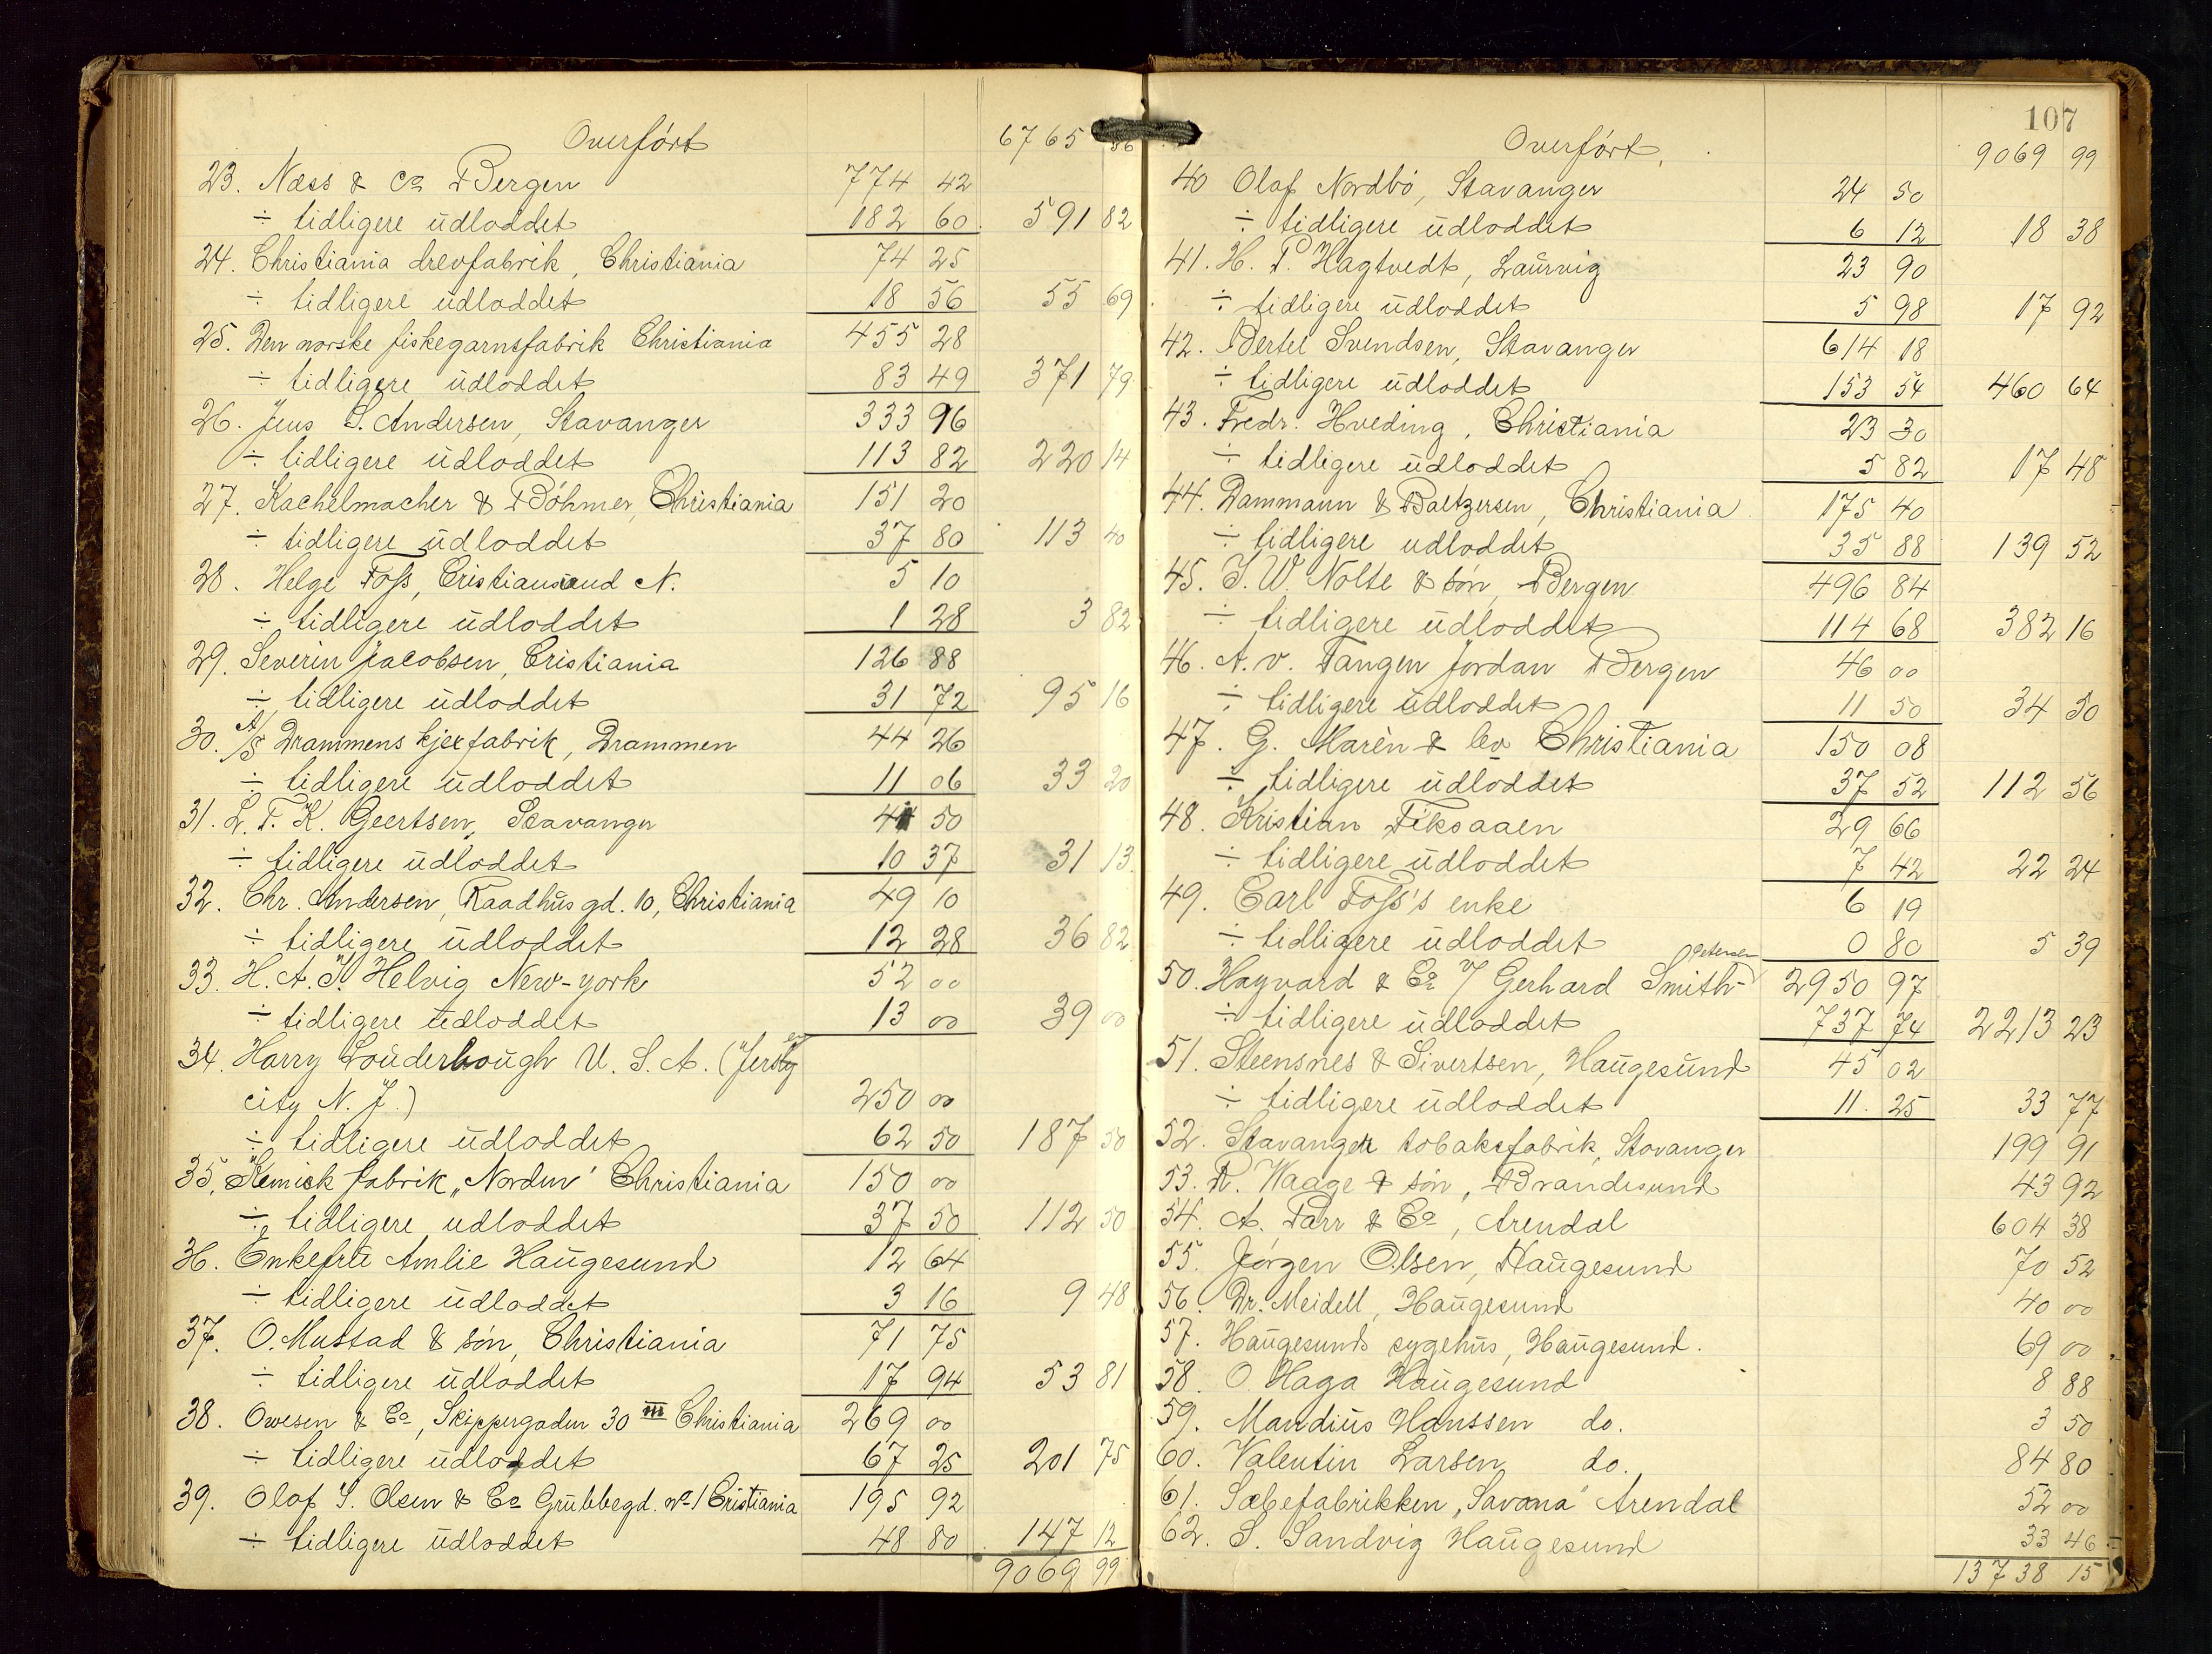 Overført 6765 56
23. Næss & Co Bergen 774 42
÷ tidligere udloddet 182 60 591 82
24. Christiania drevfabrik, Christiania 74 25
÷ tidligere udloddet 18 56 55 69
25. Den norske fiskegarnsfabrik Christiania 455 28
÷ tidligere udloddet 83 49 371 79
26. Jens S. Andersen, Stavanger 333 96
÷ tidligere udloddet 113 82 220 14
27. Kachelmacher & Bøhmer, Christiania 151 20
÷ tidligere udloddet 37 80 113 40
28. Helge Foss, Cristiansund N. 5 10
÷ tidligere udloddet 1 28 3 82
29. Severin Jacobsen, Cristiania 126 88
÷ tidligere udloddet 31 72 95 16
30. A/S Drammens kjexfabrik, Drammen 44 26
÷ tidligere udloddet 11 06 33 20
31. L. T. K. Geertsen, Stavanger 41 50
÷ tidligere udloddet 10 37 31 13
32. Chr. Andersen, Raadhusgd. 10, Christiania 49 10
÷ tidligere udloddet 12 28 36 82
33. H. A. J. Helvig New-york 52 00
÷ tidligere udloddet 13 00 39 00
34. Harry Louderbough U. S. A. (Jersey
city N. J.) 250 00
÷ tidligere udloddet 62 50 187 50
35. Kemisk fabrik „Norden" Christiania 150 00
÷ tidligere udloddet 37 50 112 50
36. Enkefru Amlie Haugesund 12 64
÷ tidligere udloddet 3 16 9 48
37. O. Mustad & søn, Christiania 71 75
÷ tidligere udloddet 17 94 53 81
38. Owesen & Co, Skippergaden 30 III Christiania 269 00
÷ tidligere udloddet 67 25 201 75
39. Olaf S. Olsen & Co Grubbegd. No 1 Cristiania 195 92
÷ tidligere udloddet 48 80 147 12
9069 99
107
Overført. 9069 99
40 Olaf Nordbø, Stavanger 24 50
÷ tidligere udloddet 6 12 18 38
41. H. P. Hagtvedt, Laurvig 23 90
÷ tidligere udloddet 5 98 17 92
42. Bertel Svendsen, Stavanger 614 18
÷ tidligere udloddet 153 54 460 64
43. Fredr. Hveding, Christiania 23 30
÷ tidligere udloddet 5 82 17 48
44. Dammann & Baltzersen, Christiania 175 40
÷ tidligere udloddet 35 88 139 52
45. J. W. Nolte & søn, Bergen 496 84
÷ tidligere udloddet 114 68 382 16
46. A. v. Tangen Jordan Bergen 46 00
÷ tidligere udloddet 11 50 34 50
47. G. Marèn & Co Christiania 150 08
÷ tidligere udloddet 37 52 112 56
48. Kristian Fiksaaen 29 66
÷ tidligere udloddet 7 42 22 24
49. Carl Foss's enke 6 19
÷ tidligere udloddet 0 80 5 39
50. Hayvard & Co v/ Gerhard Smith-Petersen 2950 97
÷ tidligere udloddet 737 74 2213 23
51. Steensnes & Sivertsen, Haugesund 45 02
÷ tidligere udloddet 11. 25 33 77
52. Stavanger tobaksfabrik, Stavanger 199 91
53. R. Waage & søn, Brandesund 43 92
54. A. Parr & Co, Arendal 604 38
55. Jørgen Olsen, Haugesund 70 52
56. Dr. Meidell, Haugesund 40 00
57. Haugesunds sygehus, Haugesund. 69 00
58. O. Haga Haugesund 8 88
59. Mandius Hanssen do. 3 50
60. Valentin Larsen do. 84 80
61. Sæbefabrikken „Savona" Arendal 52 00
62. S. Sandvig Haugesund 33 46
13738 15